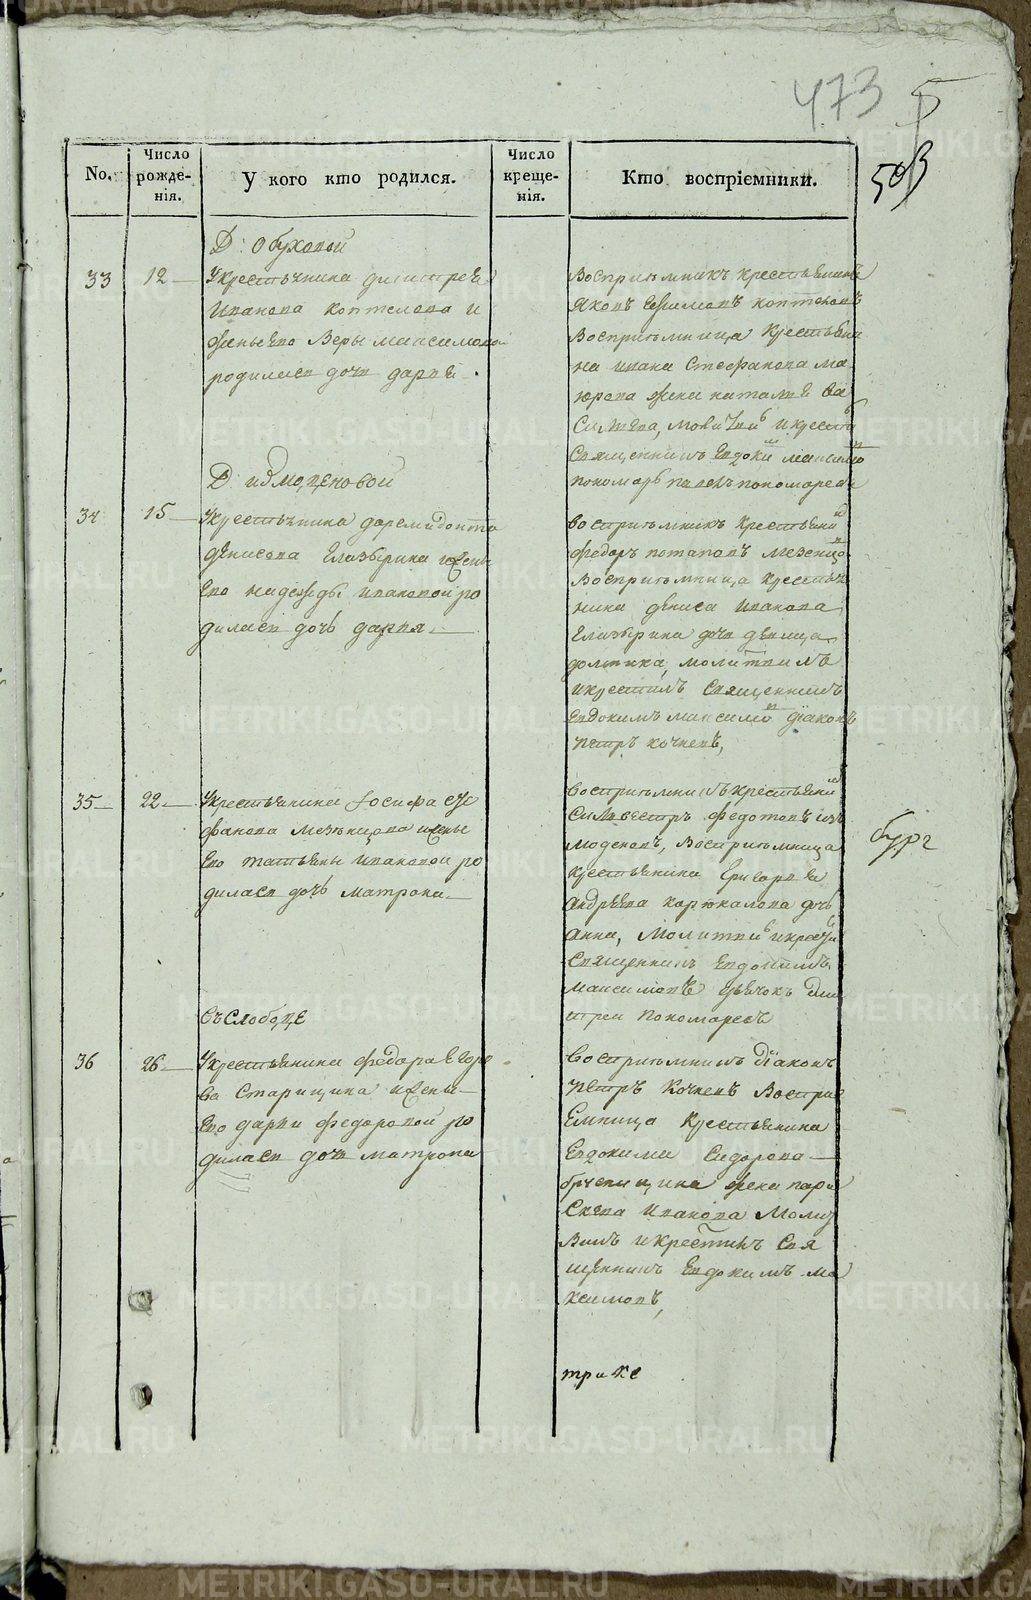 473
5
503
No.
Число рожде-
нія.
У кого кто родился.
Число креще-
нія.
Кто воспріемники.
Д: обуховой
33
12
У крестьянина димитрея
иванова коптелова и
жены ево Веры максимовой
родилась дочь дарья
Воспрыемникъ крестьянинъ
Яковъ коптеловъ
Воспрыемница крестьяни
на ивана Стефанова ма
юрова жена наталья Ва
Сильева, молитвъ и крести
Священникъ Евдоким максимо
пономарь пономарев
Д: измоденовой
34
15
У крестьянина
денисова Елизырина и жены
Ево надежды ивановой ро
дилась дочь дарья
воспрыемникъ крестьянин
федоръ потаповъ мезенцо
Воспрыемница крестьян
нина дениса иванова
Елазырина дочь девица
молитвилъ
и крестилъ Священникъ
Евдокимъ максимо діаконъ
петръ кочневъ,
35
22
У крестьянина Іосифа сте
фанова мезенцова и жены
Ево татьяны ивановой ро
дилась дочь матрона
воспрыемникъ крестьяни
Силвестръ федотовъ из
моденовъ, Воспрыемница
крестьянина григорья
андреева каркалова дочь
анна, Молитви и крести
Священникъ Евдокимъ
максимовъ дьячокъ дми
треи пономаревъ
бург
въ слободе
36
26
У крестьянина федора Егоро
ва Старицина и жены
Ево дарьи федоровой ро
дилась дочь матрона
воспрыемникъ діаконъ
Петръ Кочневъ Воспри
Емница крестьянина
Евдокима Сидорова
жена пара
скева иванова Молит
Вилъ и крестилъ Свя
щенникъ Евдокимъ ма
ксимовъ,
трике
METRIKI.GASO-URAL.RU